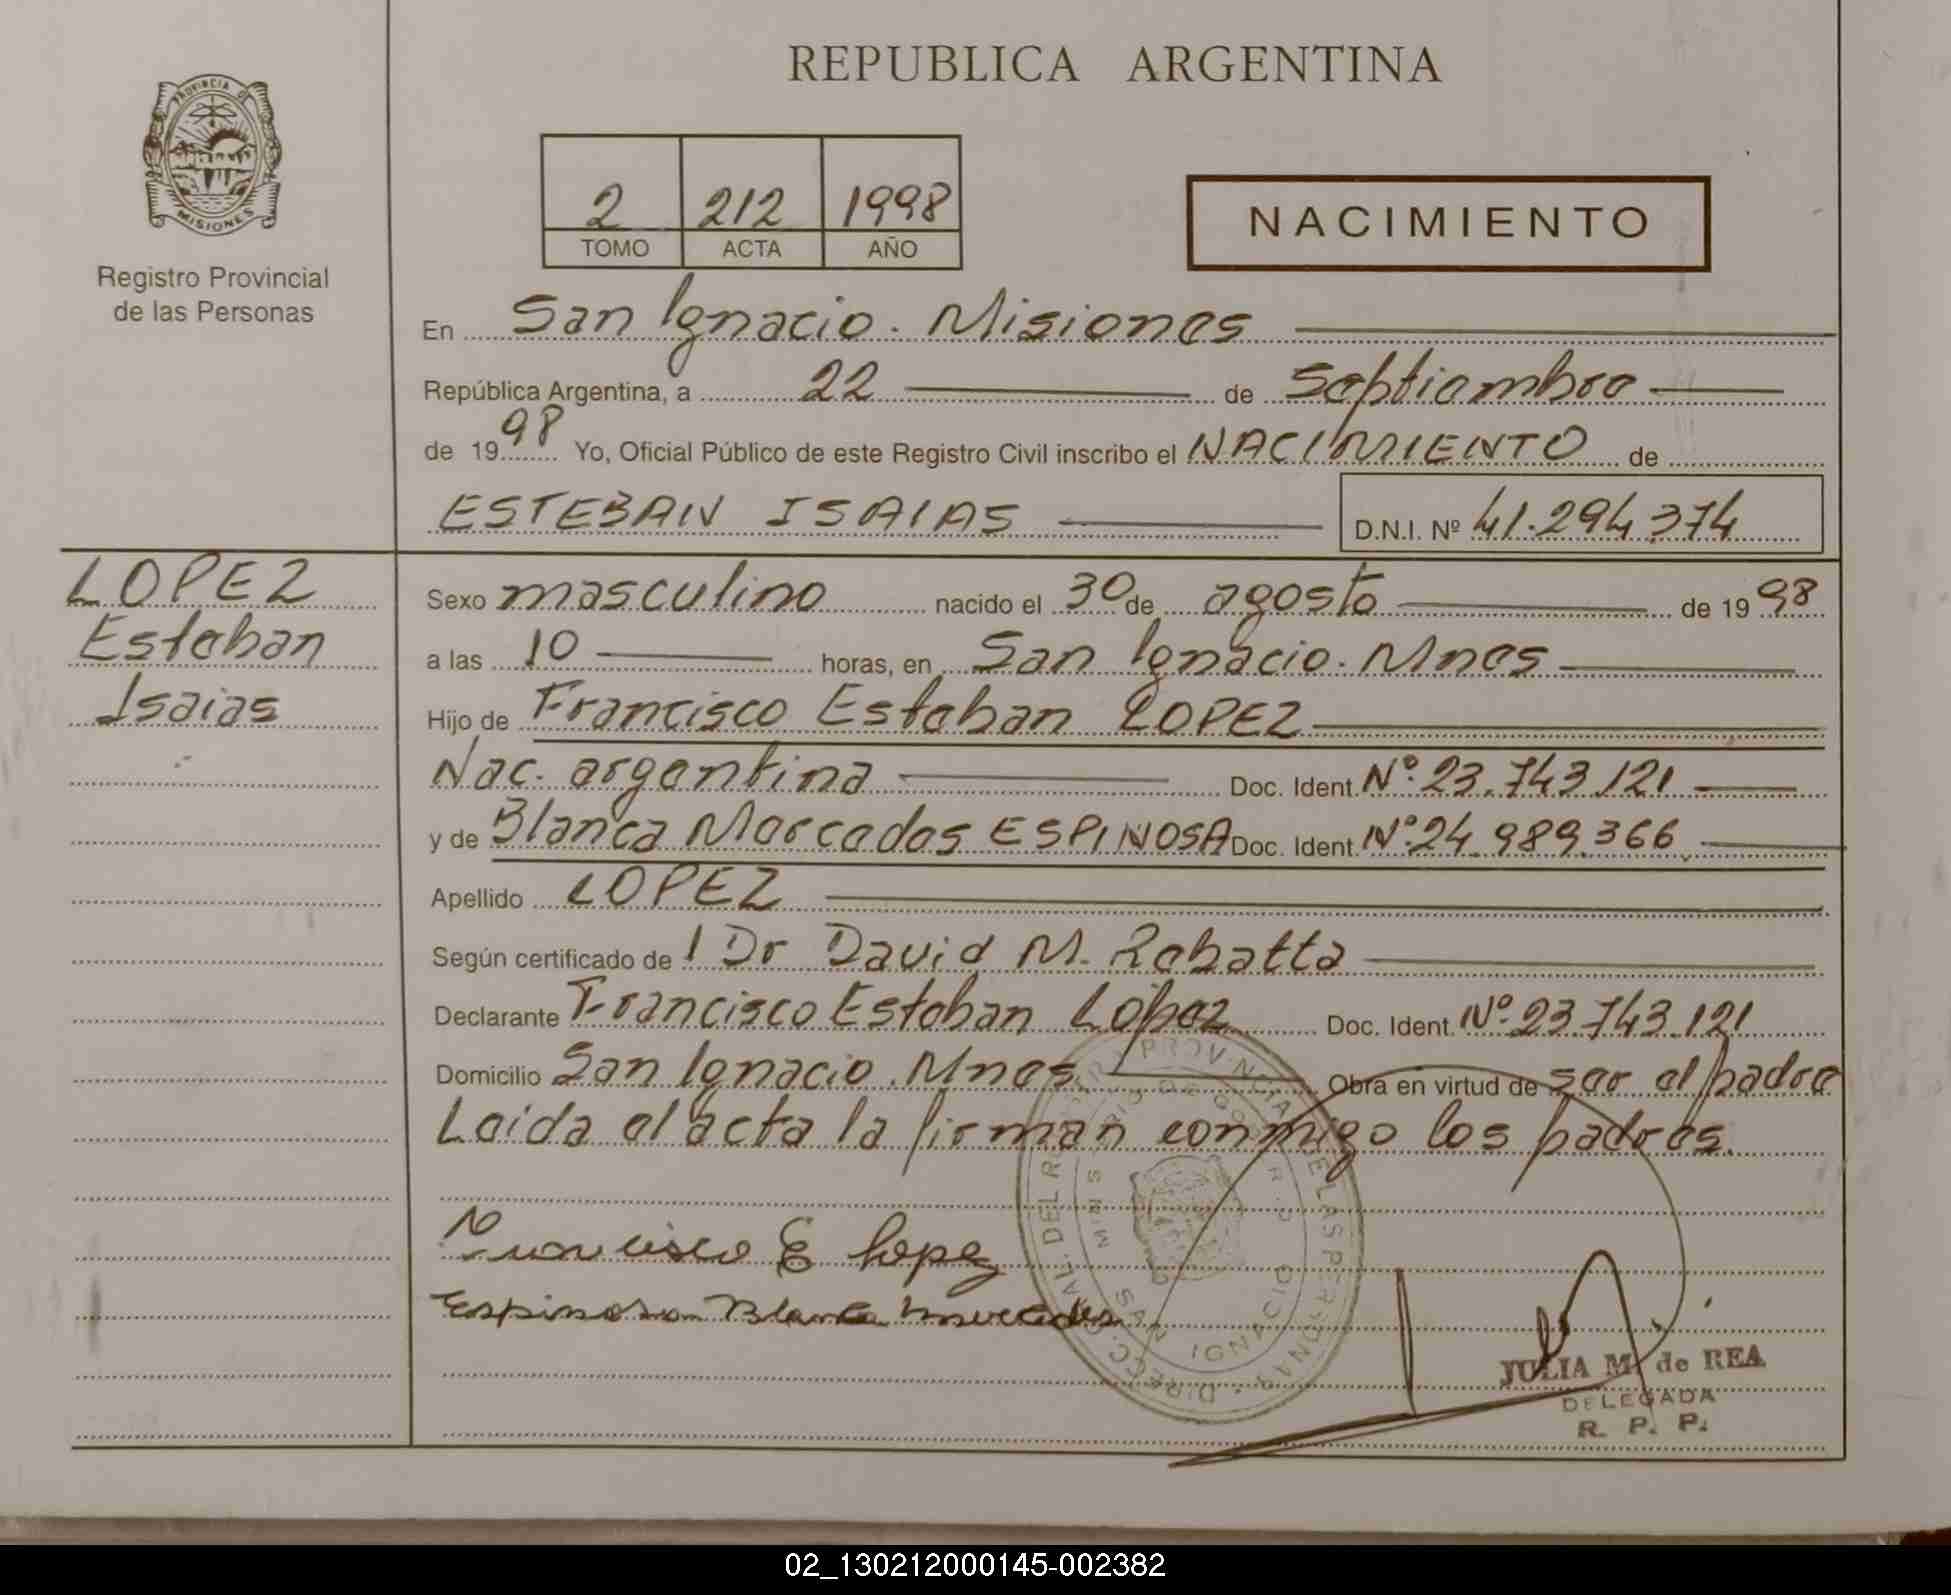 REPUBLICA ARGENTINA
PROVINCIA DE
MISIONES
Registro Provincial
de las Personas
2 212 1998
TOMO ACTA AÑO
NACIMIENTO
En San Ignacio. Misiones
República Argentina, a 22 de Septiembre
de 1998 Yo, Oficial Público de este Registro Civil inscribo el NACIMIENTO de
ESTEBAN ISAIAS D.N.I. Nº 41.294.374
LOPEZ
Esteban
Isaias
Sexo masculino nacido el 30 de agosto de 1998
a las 10 horas, en San Ignacio. Mnes
Hijo de Francisco Esteban LOPEZ
Nac. argentina Doc. Ident. Nº. 23.743.121
y de Blanca Mercedes ESPINOSA Doc. Ident. Nº. 24.989.366
Apellido LOPEZ
Según certificado de l Dr David M. Rebatta
Declarante Francisco Esteban López Doc. Ident. Nº. 23.743.121
Domicilio San Ignacio. Mnes Obra en virtud de ser el padre
Leida el acta la firman conmigo los padres.
Francisco E Lopez
Espinosa Blanca Mercedes
SAN IGNACIO
JULIA M. de REA
DELEGADA
R. P. P.
02_130212000145-002382